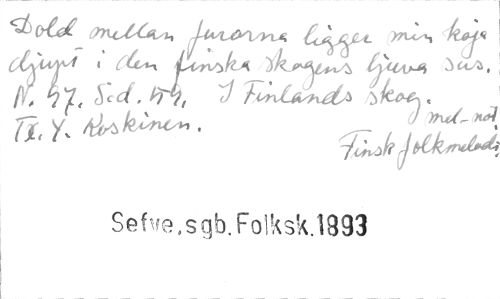 Dold mellan furorna ligger min koja
djupt i den finska skogens ljuva sus.
N. 47. Sid. 54. I Finlands skog.
mel-not
Tr. Y. Koskinen.
Finsk folkmelodi
Sefve,sgb.Folksk.1893